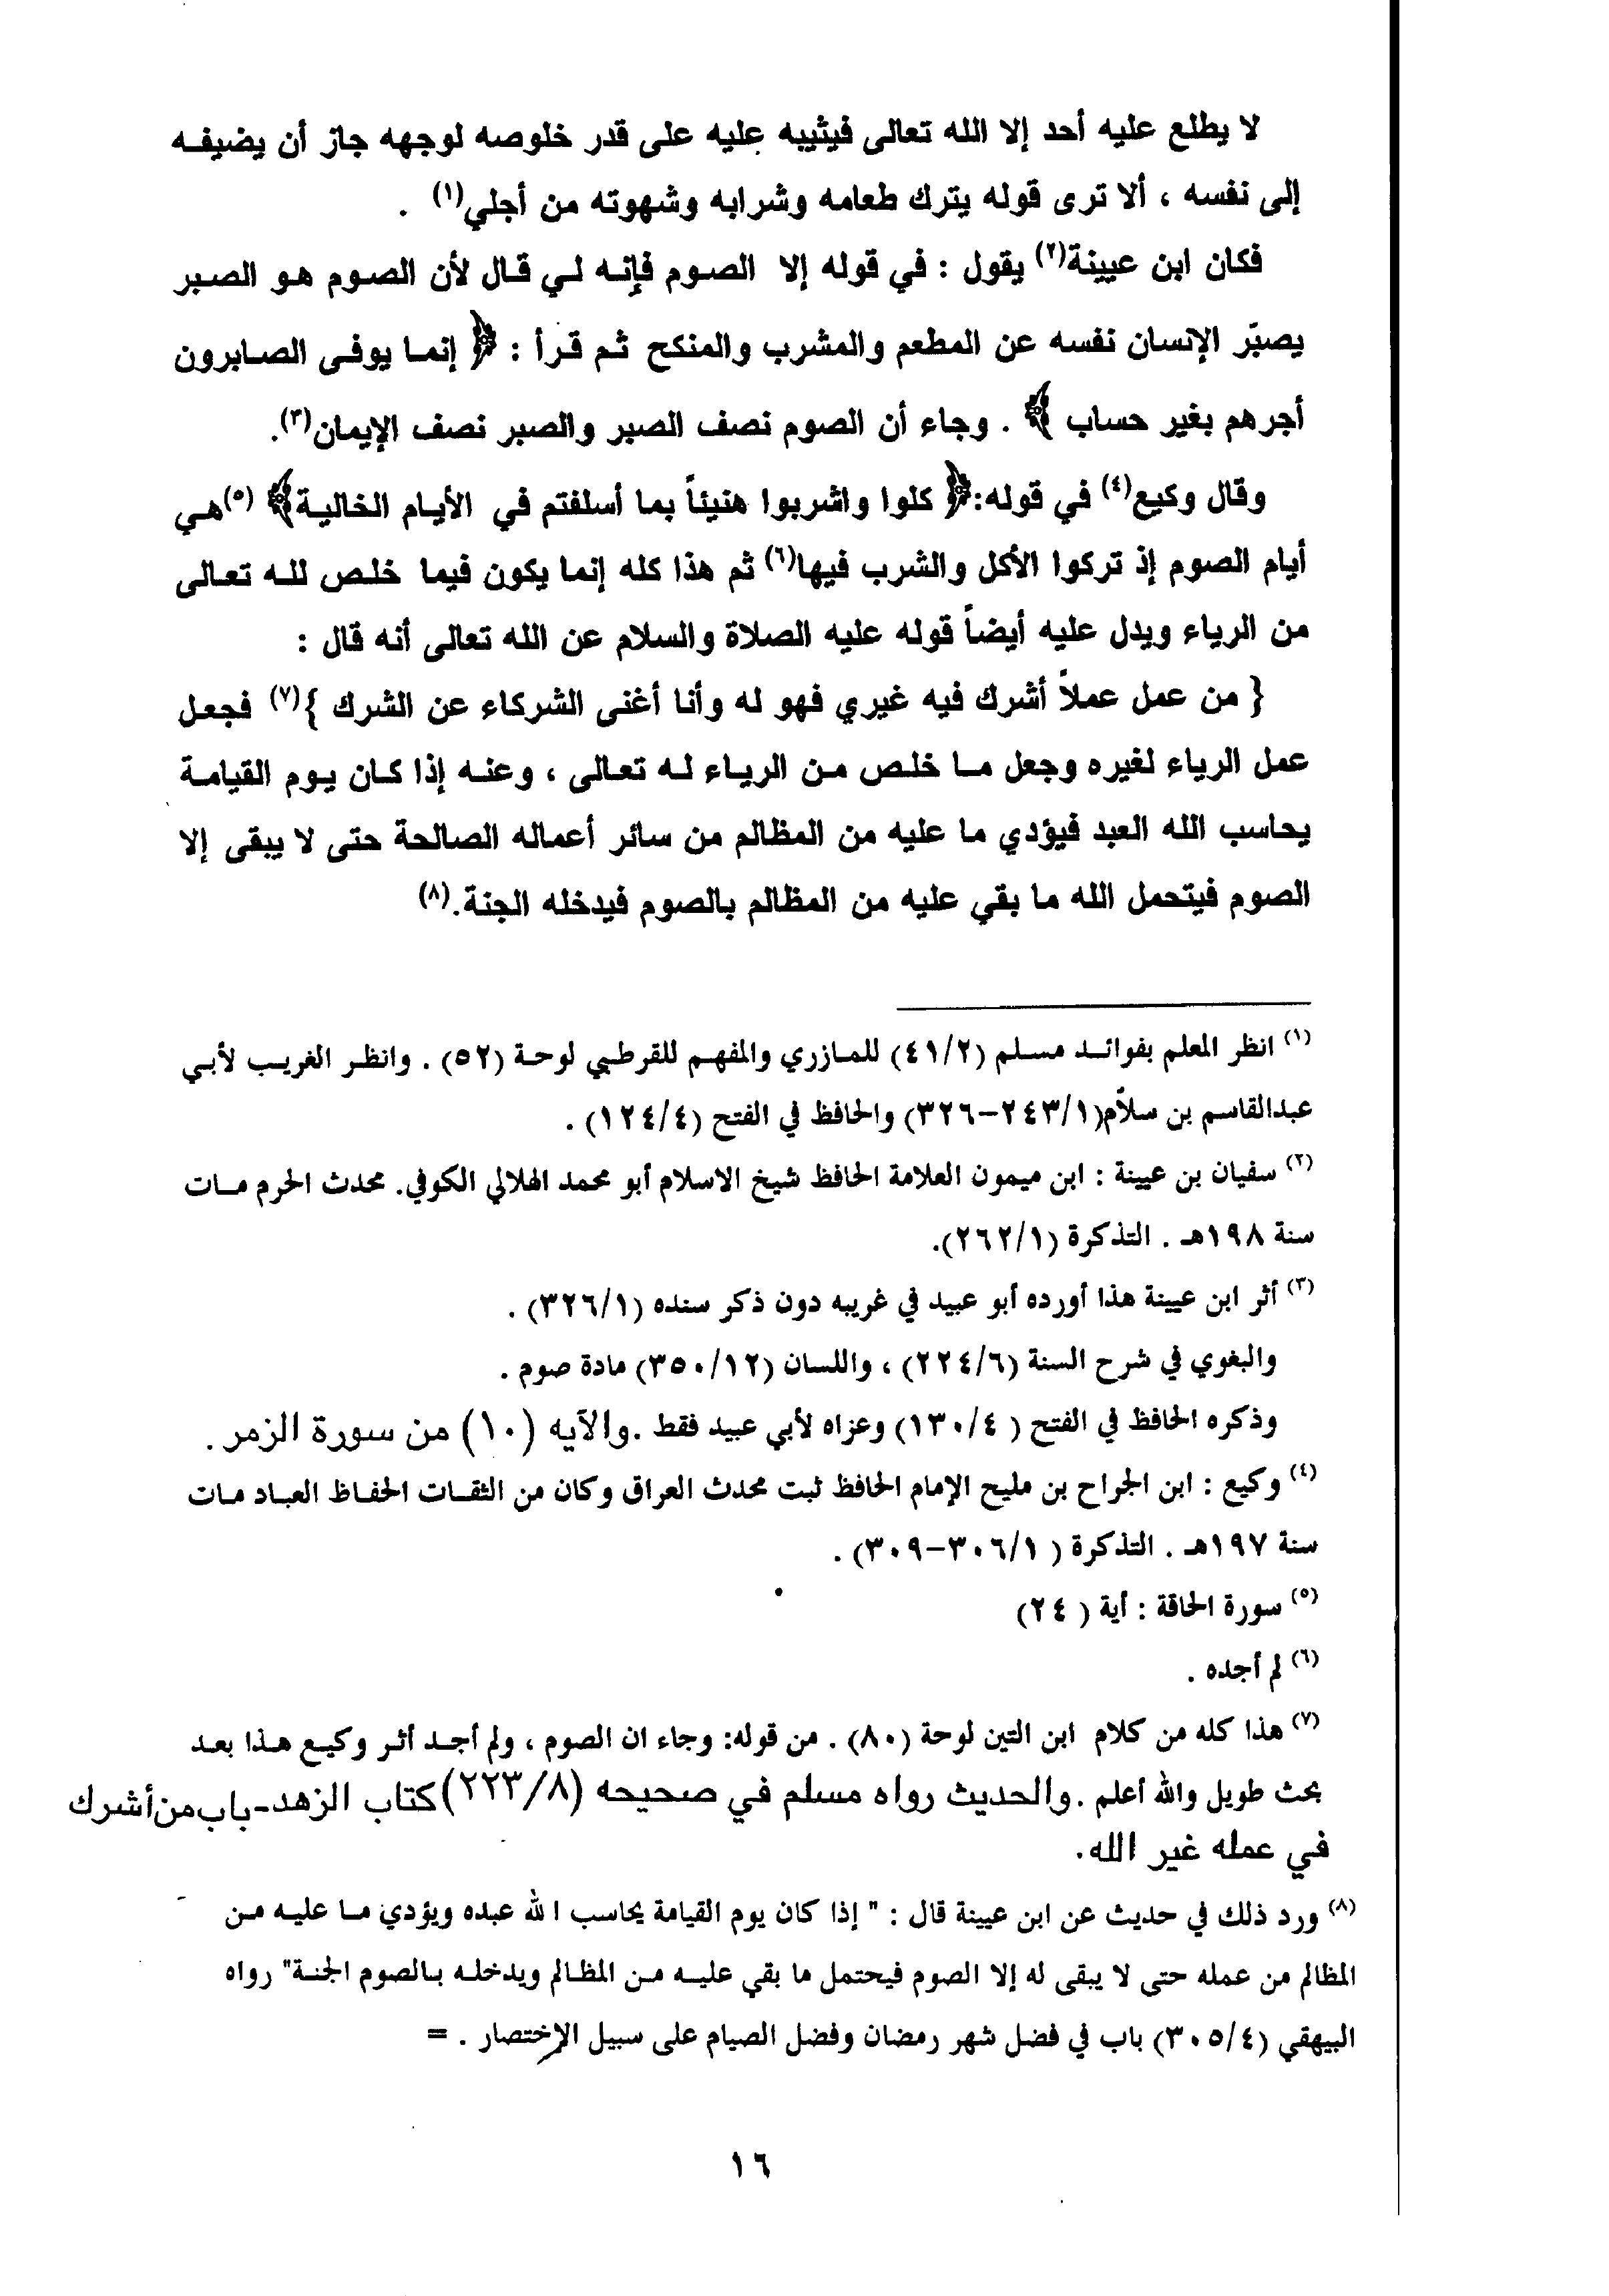 لا يطلع عليه أحد إلا الله تعالى فيثيبه عليه على قدر خلوصه لوجهه جاز أن يضيفه
إلى نفسه ، ألا ترى قوله يترك طعامه وشرابه وشهوته من أجلي(١) .
فكان ابن عيينة(٢) يقول : في قوله إلا الصوم فإنه لي قال لأن الصوم هو الصبر
يصبّر الإنسان نفسه عن المطعم والمشرب والمنكح ثم قرأ : ﴿ إنما يوفى الصابرون
أجرهم بغير حساب ﴾ . وجاء أن الصوم نصف الصبر والصبر نصف الإيمان(٣).
وقال وكيع(٤) في قوله:﴿ كلوا واشربوا هنيئاً بما أسلفتم في الأيام الخالية﴾ (٥)هي
أيام الصوم إذ تركوا الأكل والشرب فيها(٦) ثم هذا كله إنما يكون فيما خلص لله تعالى
من الرياء ويدل عليه أيضاً قوله عليه الصلاة والسلام عن الله تعالى أنه قال :
{ من عمل عملاً أشرك فيه غيري فهو له وأنا أغنى الشركاء عن الشرك }(٧) فجعل
عمل الرياء لغيره وجعل ما خلص من الرياء له تعالى ، وعنه إذا كان يوم القيامة
يحاسب الله العبد فيؤدي ما عليه من المظالم من سائر أعماله الصالحة حتى لا يبقى إلا
الصوم فيتحمل الله ما بقي عليه من المظالم بالصوم فيدخله الجنة.(٨)
(١) انظر المعلم بفوائد مسلم (٤١/٢) للمازري والمفهم للقرطبي لوحة (٥٢) . وانظر الغريب لأبي
عبدالقاسم بن سلاّم(٢٤٣/١-٣٢٦) والحافظ في الفتح (١٢٤/٤) .
(٢) سفيان بن عيينة : ابن ميمون العلامة الحافظ شيخ الاسلام أبو محمد الهلالي الكوفي. محدث الحرم مات
سنة ١٩٨هـ . التذكرة (٢٦٢/١).
(٣) أثر ابن عيينة هذا أورده أبو عبيد في غريبه دون ذكر سنده (٣٢٦/١) .
والبغوي في شرح السنة (٢٢٤/٦) ، واللسان (٣٥٠/١٢) مادة صوم .
وذكره الحافظ في الفتح ( ١٣٠/٤) وعزاه لأبي عبيد فقط .والآيه (١٠) من سورة الزمر .
(٤) وكيع : ابن الجراح بن مليح الإمام الحافظ ثبت محدث العراق وكان من الثقات الحفاظ العباد مات
سنة ١٩٧هـ . التذكرة ( ٣٠٦/١-٣٠٩) .
(٥) سورة الحاقة : أية ( ٢٤)
(٦) لم أجده .
(٧) هذا كله من كلام ابن التين لوحة (٨٠) . من قوله: وجاء ان الصوم ، ولم أجد أثر وكيع هذا بعد
بحث طويل والله أعلم .والحديث رواه مسلم في صحيحه (٢٢٣/٨)كتاب الزهد-باب من أشرك
في عمله غير الله.
(٨) ورد ذلك في حديث عن ابن عيينة قال : " إذا كان يوم القيامة يحاسب ا لله عبده ويؤدي ما عليه من
المظالم من عمله حتى لا يبقى له إلا الصوم فيحتمل ما بقي عليه من المظالم ويدخله بالصوم الجنة" رواه
البيهقي (٣٠٥/٤) باب في فضل شهر رمضان وفضل الصيام على سبيل الإختصار . =
١٦